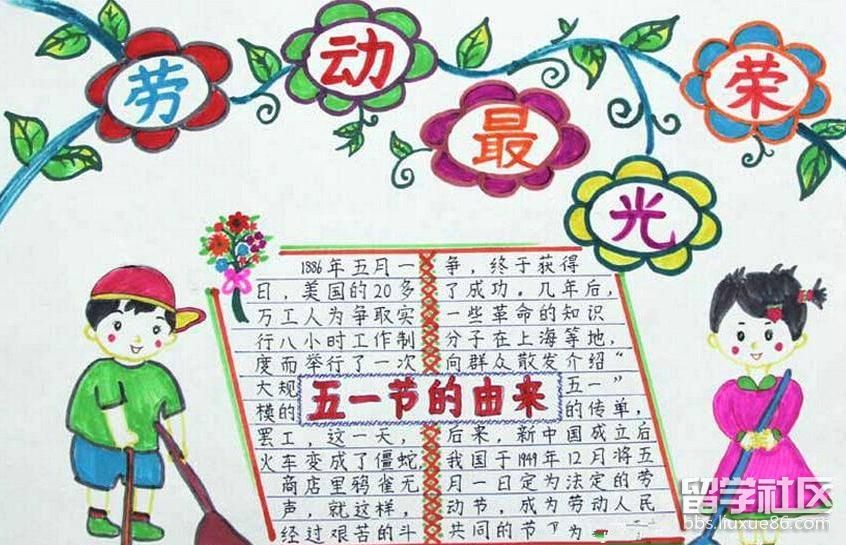 劳动最光荣
1886年五月一
日，美国的20多
万工人为争取实
行八小时工作制
度而举行了一次
大规
模的
罢工，这一天，
火车变成了僵蛇，
商店里鸦雀无
声，就这样，
经过艰苦的斗
五一节的由来
争，终于获得
了成功。几年后，
一些革命的知识
分子在上海等地，
向群众散发介绍“
五一”
的传单，
后来，新中国成立后
我国于1949年12月将五
月一日定为法定的劳
动节，成为劳动人民
共同的节
为
留学社区
bbs.liuxue86.com